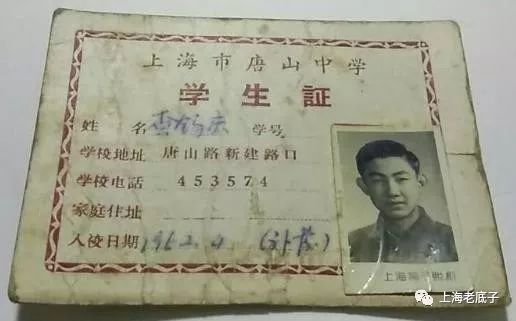 上海市唐山中学
学生証
姓 名 学号
学校地址 唐山路新建路口
学校电話 453574
家庭住址
入校日期 1962.4
上海
上海老底子